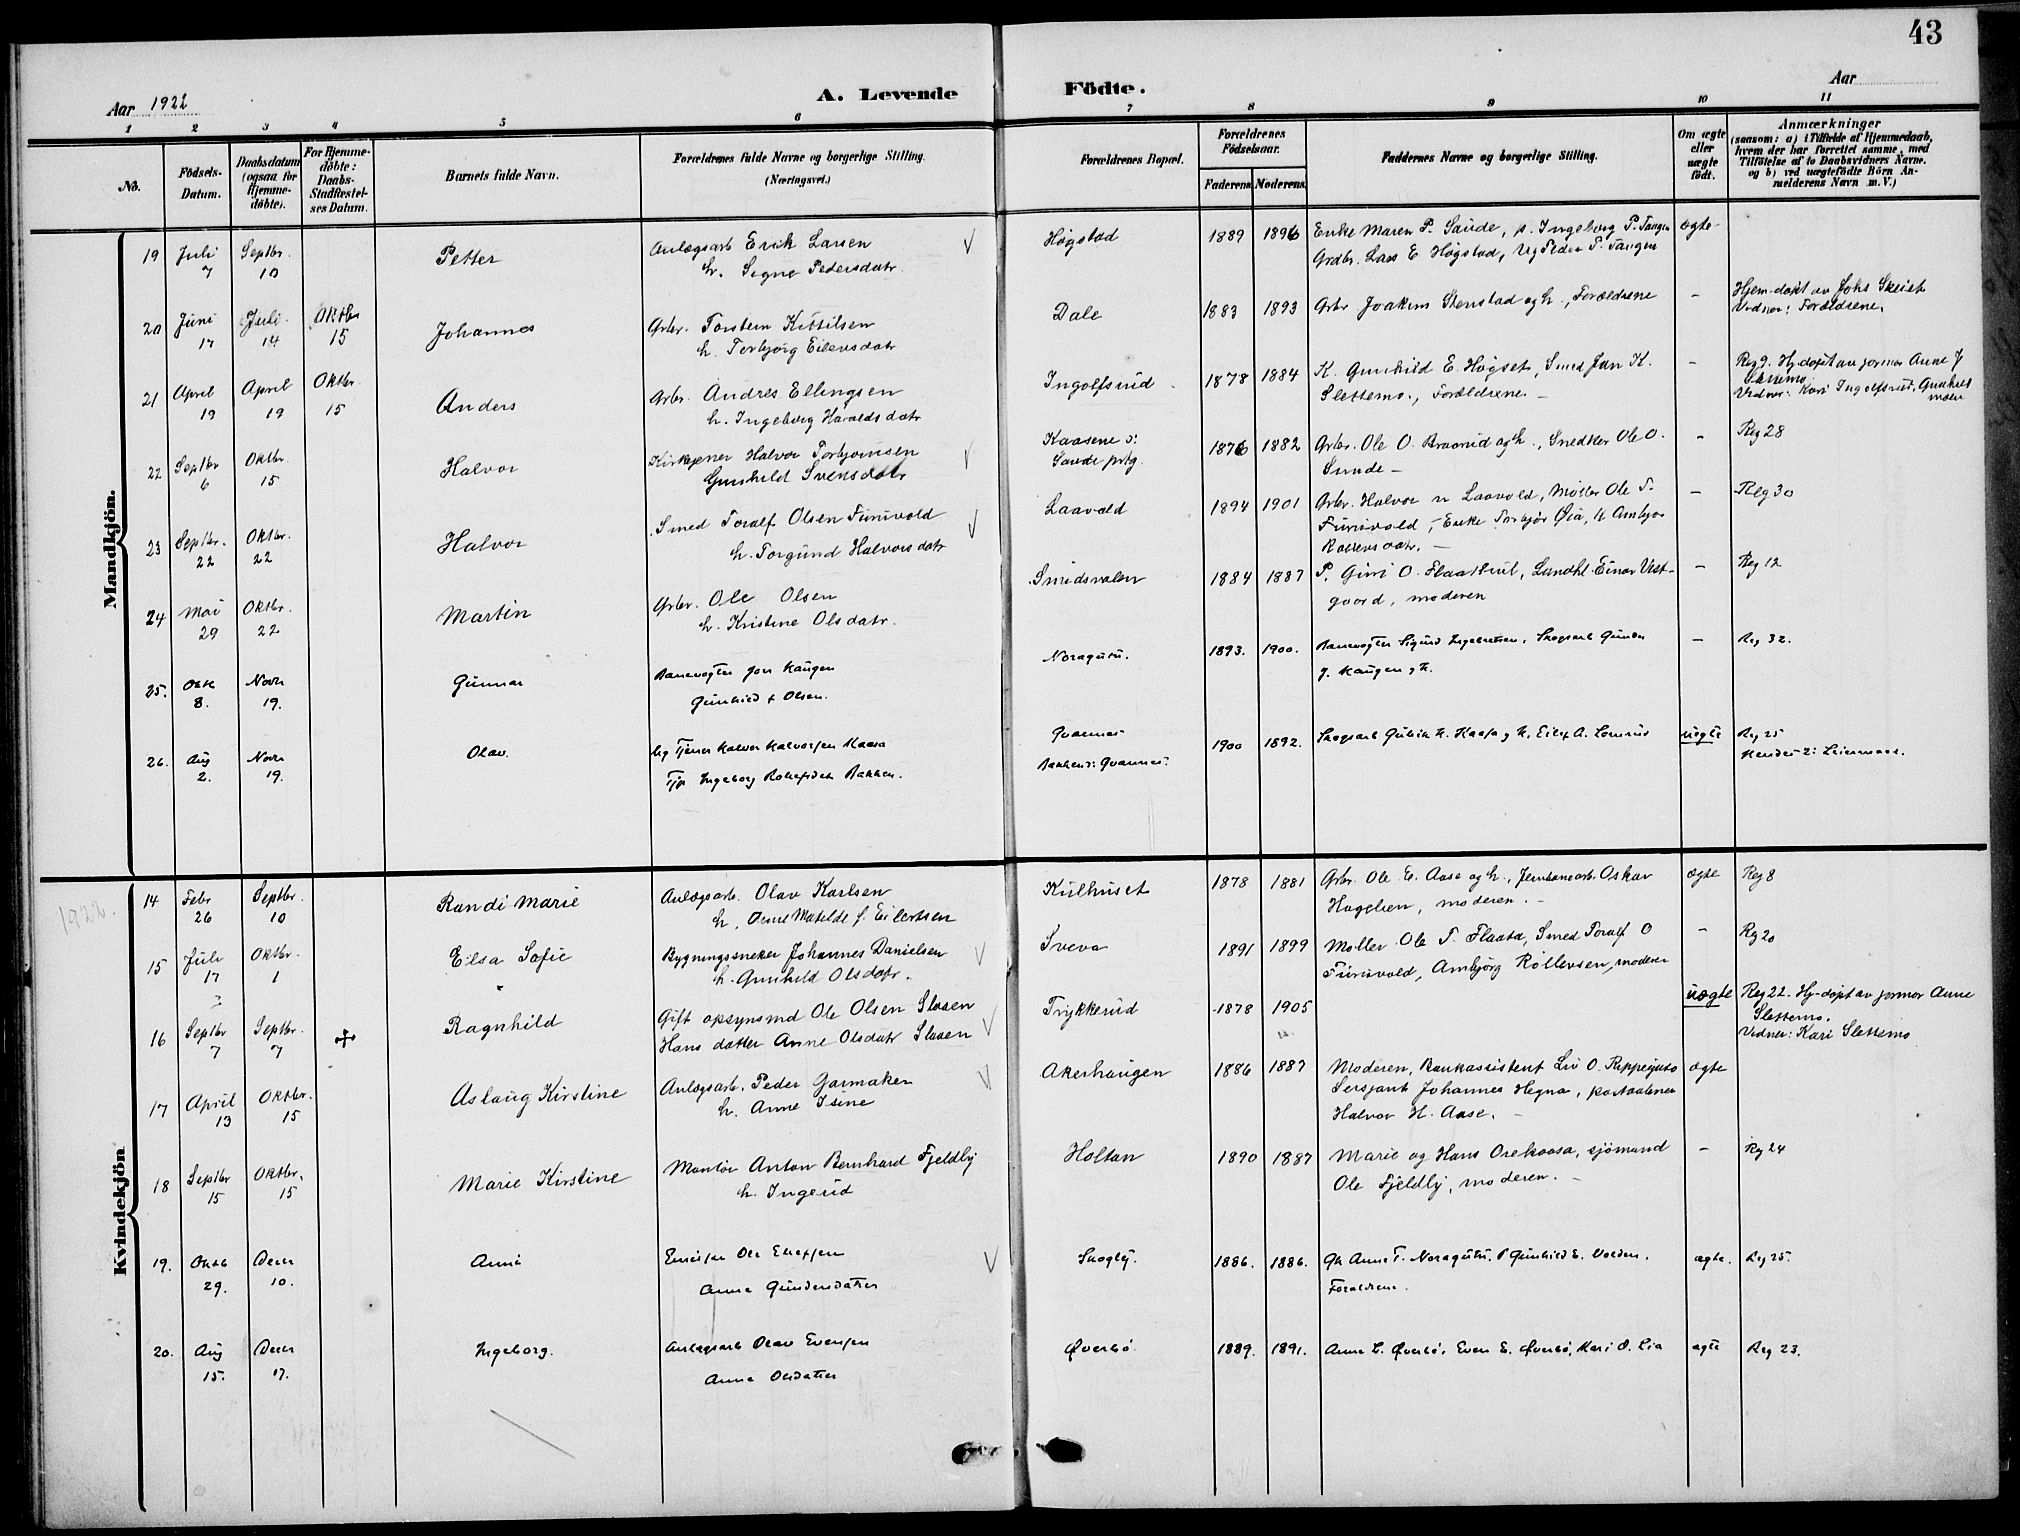 43
Aar 1922
A. Levende
Födte.
Aar
1 2 3 4 5 6 7 8 9 10 11
No.
Födsels-
Datum.
Daabsdatum
(ogsaa for
Hjemme-
döbte).
For Hjemme-
döbte:
Daabs-
Stadfestel-
ses Datum.
Barnets fulde Navn.
Forældrenes fulde Navne og borgerlige Stilling.
(Næringsvei.)
Forældrenes Bopæl.
Forældrenes
Födselsaar.
Faderens
Moderens
Faddernes Navne og borgerlige Stilling.
Om ægte
eller
uægte
födt.
Anmærkninger
(saasom: a) i Tilfælde af Hjemmedaab,
hvem der har forrettet samme, med
Tilföielse af to Daabsvidners Navne.
og b) ved uægtefödte Börn An-
melderens Navn m. V.)
Mandkjön.
19 Juli Septbr. Petter Anlægsarb Erik Larsen Høgstad 1889 1896 Enke Maren P. Saude, p. Ingeborg P. Taugen ægte
7 10 h. Signe Pedersdatr. Grdbr. Lars E Høgstad, Ug Peder P. Taugen
20 Juni Juli Oktbr Johannes Grbr. Torstein Kittilsen Dale 1883 1893 Grbr Joakim Stenstad og h., Forældrene - Hjem-døpt av Johs Skeie
17 14 15 h. Torbjørg Eilevsdatr Vidner: Forældrene.
21 April April Oktbr. Anders Grbr. Andres Ellingsen Ingolfsrud 1878 1884 K. Gunhild E. Høgset, Smed Jan K. - Reg 9. Hj-døpt av jormor Anne J
19 19 15 h. Ingeborg Haraldsdatr Slettemo, Forældrene - Slettemo
Vidner: Kari Ingolfsrud, Gunhild
moen
22 Septbr Oktbr. Halvor Kirketjener Halvor Torbjørnsen Kaasene v: 1876 1882 Grbr. Ole O. Braarud og h., Snedker Ole O. - Reg 28
6 15 Gunhild Svensdatr Saude prtg. Sunde -
23 Septbr. Oktbr. Halvor Smed Toralf Olsen Furuvold Laavald 1894 1901 Grbr. Halvor Laavold, Møller Ole T. - Reg 30
22 22 h. Torgund Halvorsdatr Furuvold, Enke Torbjør Øiå, Ambjør
Rollevsdatr. -
24 Mai Oktbr. Martin Grbr. Ole Olsen Smidsvalen 1884 1887 P. Guri O. Flaathul, Landhl. Einar Vest- - Reg 12
29 22 h. Kristine Olsdatr. gaard, moderen
25. Oktb Novr Gunnar Banevogter Jon Haugen Noragutu. 1893. 1900. Banevogter Sigurd Ingebretsen, Skogsarb Gunnar - Reg 32.
8. 19. Gunhild f Olsen. J. Haugen g h.
26. Aug Novr Olav. Ug Tjener Halvor Halvorsen Haasa Gvannes 1900 1892. Skogsarb Gulik H. Haasa g h, Eilef A. Lonrud uægte Reg 25
2. 19. Tje Ingeborg Rollefsdtr Bakken. Bakken: Gvannes.
Kvindekjön
1922.
14 Febr Septbr. Randi Marie Anlægsarb. Olav Karlsen Kulhuset 1878 1881 Grbr. Ole E. Aase og h., Jernbanearb. Oskar ægte Reg 8
26 10 h. Anne Matilde f. Eilertsen Hagelien, moderen. -
15 Juli Oktbr. Elsa Sofie Bygningssneker Johannes Danielsen Sveva 1891 1899 Møller Ole T. Flaata, Smed Toralf O - Reg 20
17 1 h. Gunhild Olsdatr. Furuvold, Ambjörg Rollevsen, moderen
16 Septbr Septbr. Ragnhild Gift opsynsmd Ole Olsen Slaaen Trykkerud 1878 1905 uægte Reg 22. Hj-døpt av jormor Anne
7 7 Hans datter Anne Olsdatr Slaaen Slettemo.
Vidner: Kari Slettemo
17 April Oktbr. Aslaug Kirstine Anlægsarb. Peder Garmaker Akerhaugen 1886 1887 Moderen, Bankassistent Liv O. Reppeguto ægte
13 15 h. Anne Isine Sersjant Johannes Hegna,
Halvor H. Aase.
18 Septbr Oktbr. Marie Kirstine Montør Anton Bernhard Fjeldly Holtan 1890 1887 Marie og Hans Orekaasa, sjömand - Reg 24
15 15 h. Ingerid Ole Fjeldly, moderen. -
19. Oktb Decbr Anne Ole Ellefsen Skogly. 1886. 1886. Gk Anne T. Noragutu, P Gunhild E. Volden. ægte. Reg 25.
29. 10. Anne Gundersdatter Forældrene.
20. Aug Decbr Ingeborg. Anlægsarb Olav Evensen Øverbø. 1889. 1891. Anne L. Øverbø, Even E. Øverbø, Kari O. Lia ægte Reg 23.
15. 17. Anne Olsdatter